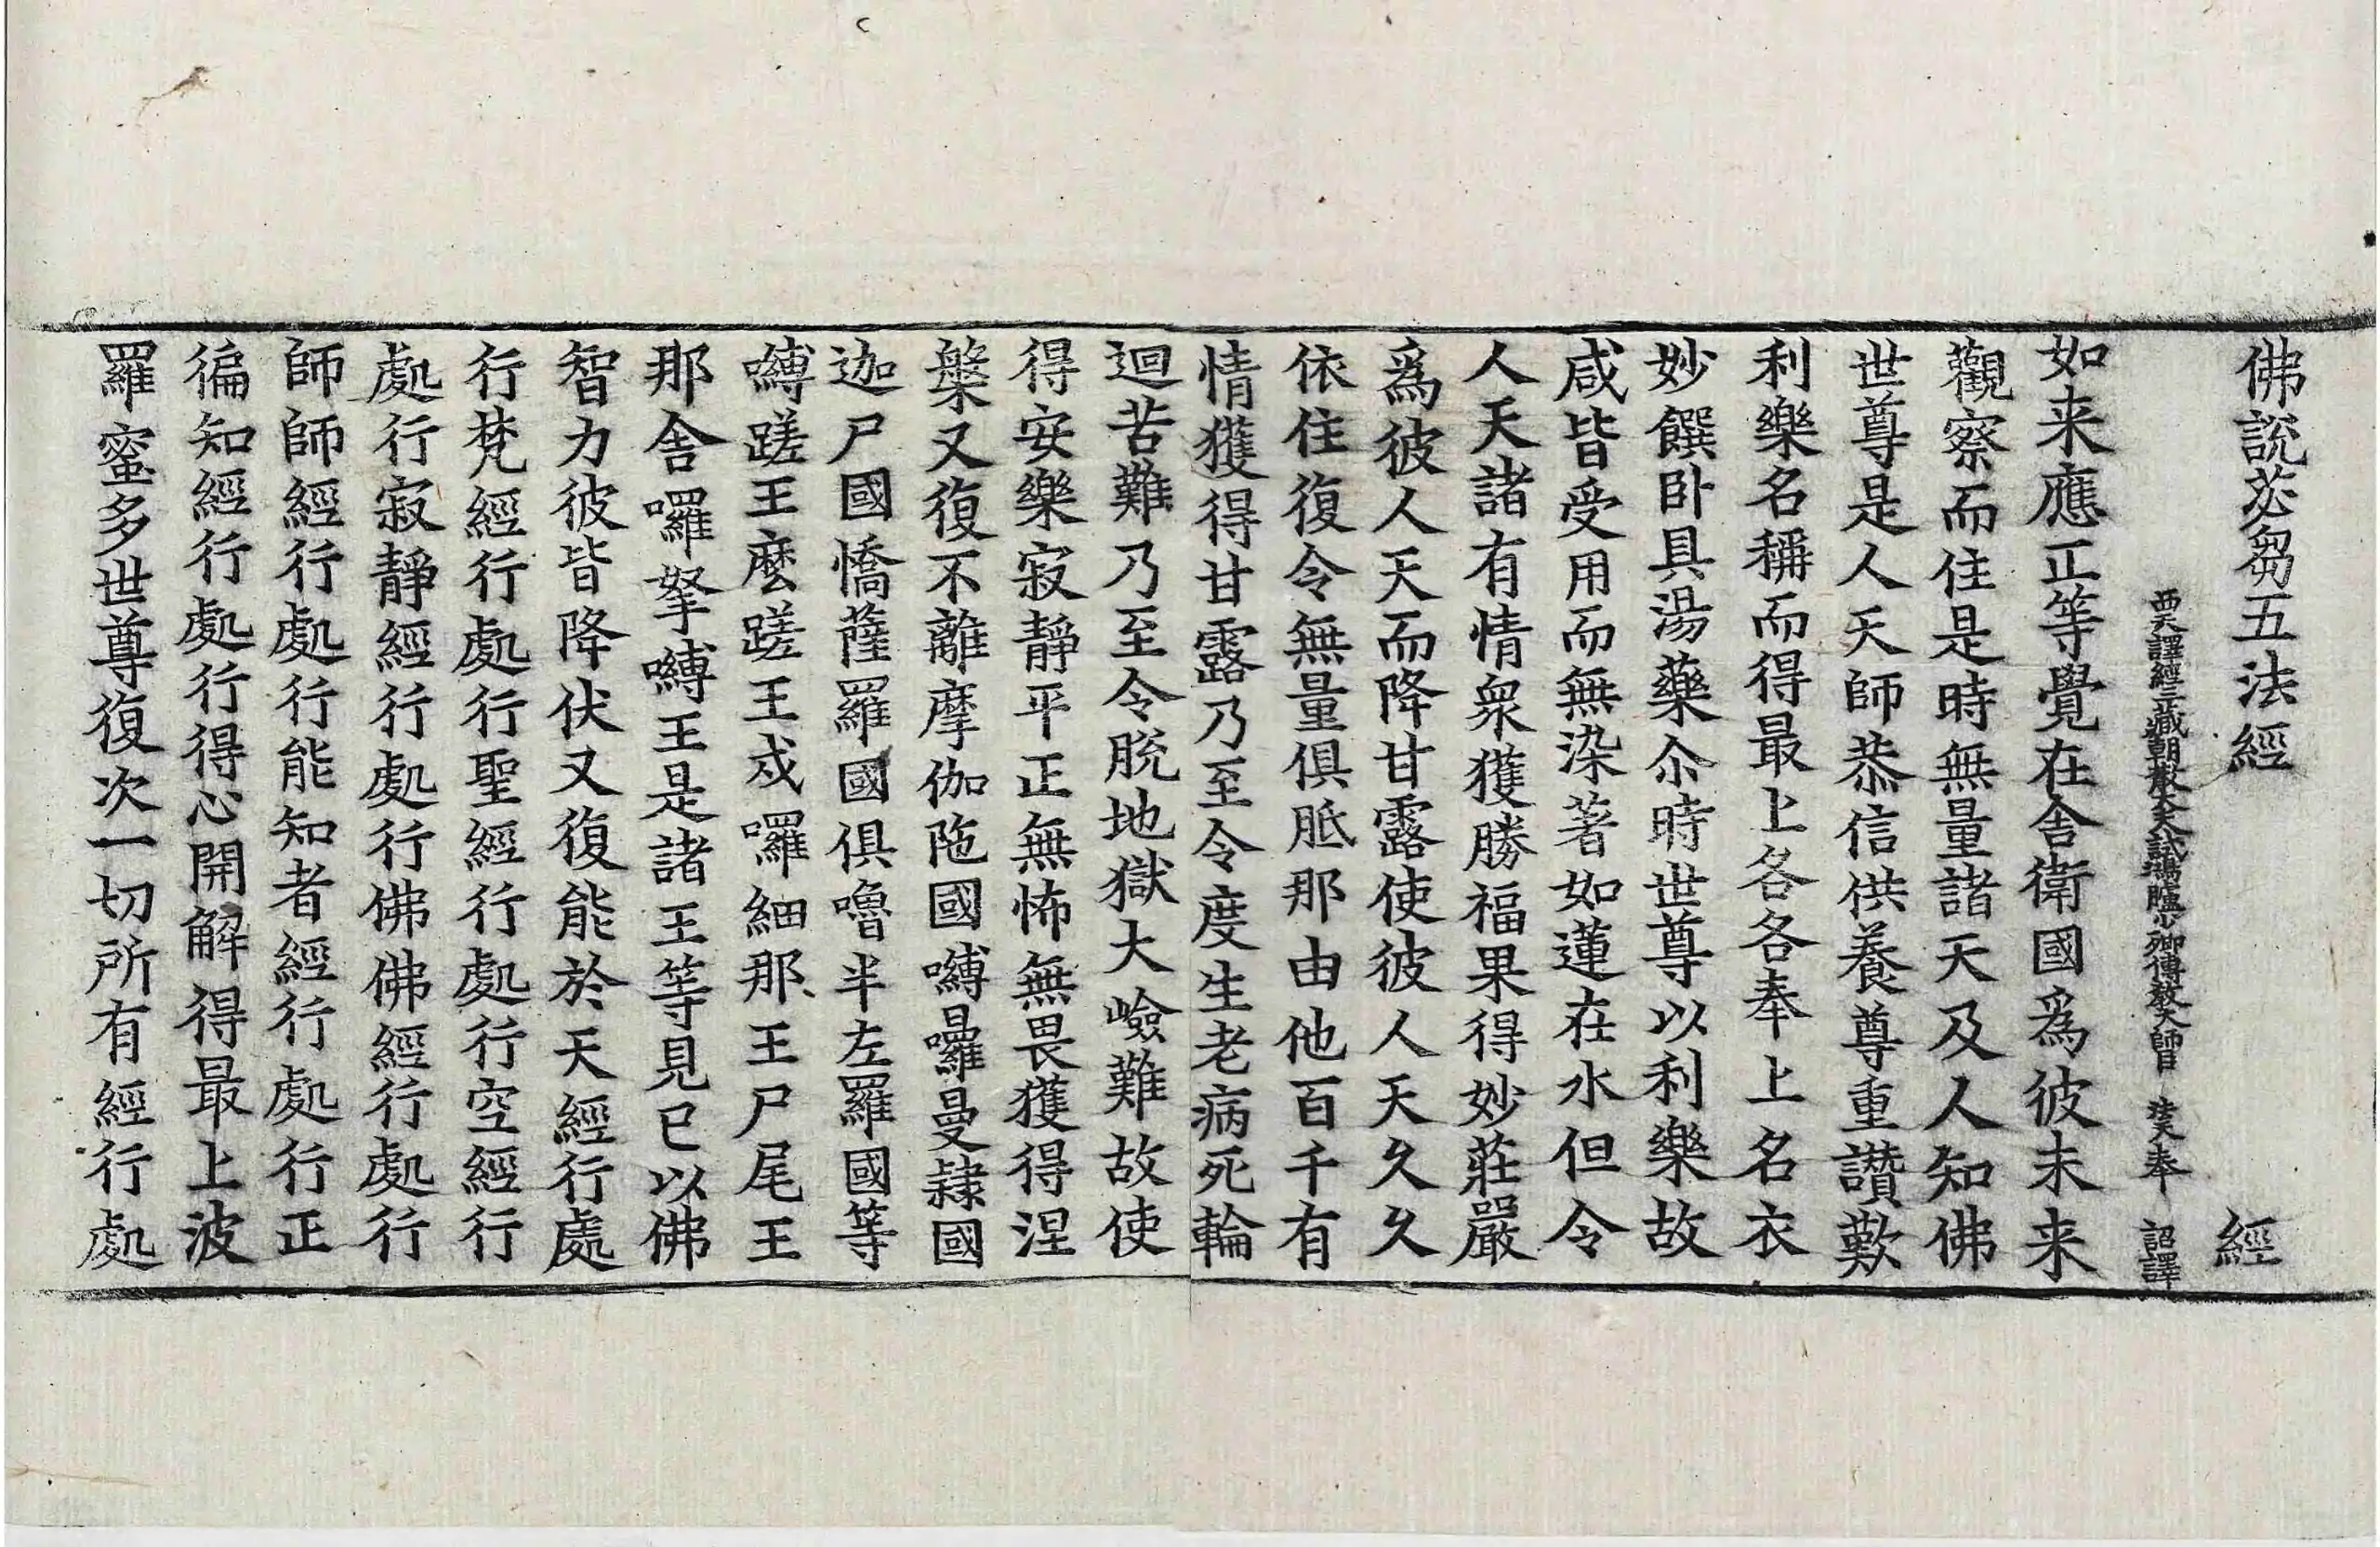 佛說苾芻五法經 經
西天譯經三藏朝散大夫試鴻臚少卿傳教大師臣 法天奉 詔譯
如来應正等覺在舎衛國爲彼未来
觀察而住是時無量諸天及人知佛
世尊是人天師恭信供養尊重讚歎
利樂名稱而得最上各各奉上名衣
妙饌卧具湯藥尒時世尊以利樂故
咸皆受用而無染著如蓮在水但令
人天諸有情衆獲勝福果得妙莊嚴
爲彼人天而降甘露使彼人天久久
依住復令無量俱胝那由他百千有
情獲得甘露乃至令度生老病死輪
迴苦難乃至令脫地獄大嶮難故使
得安樂寂靜平正無怖無畏獲得涅
槃又復不離摩伽陁國嚩囉曼隷國
迦尸國憍薩羅國俱嚕半左羅國等
嚩蹉王麽蹉王戍囉細那王尸尾王
那舎囉拏嚩王是諸王等見已以佛
智力彼皆降伏又復能於天經行處
行梵經行處行聖經行處行空經行
處行寂靜經行處行佛佛經行處行
師師經行處行能知者經行處行正
徧知經行處行得心開解得最上波
羅蜜多世尊復次一切所有經行處